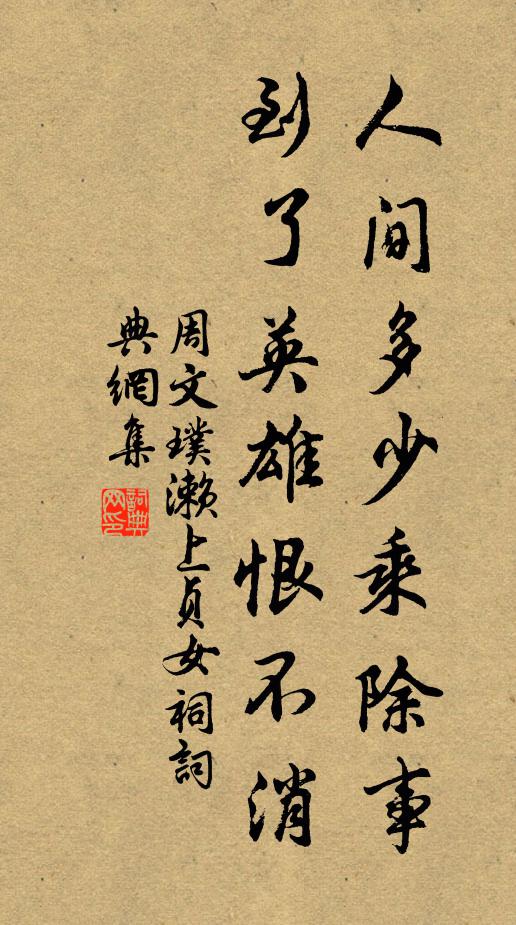 人间多少乘除事
到了英雄恨不消
周文璞濑上贞女祠詞
典網集
詞典
网印